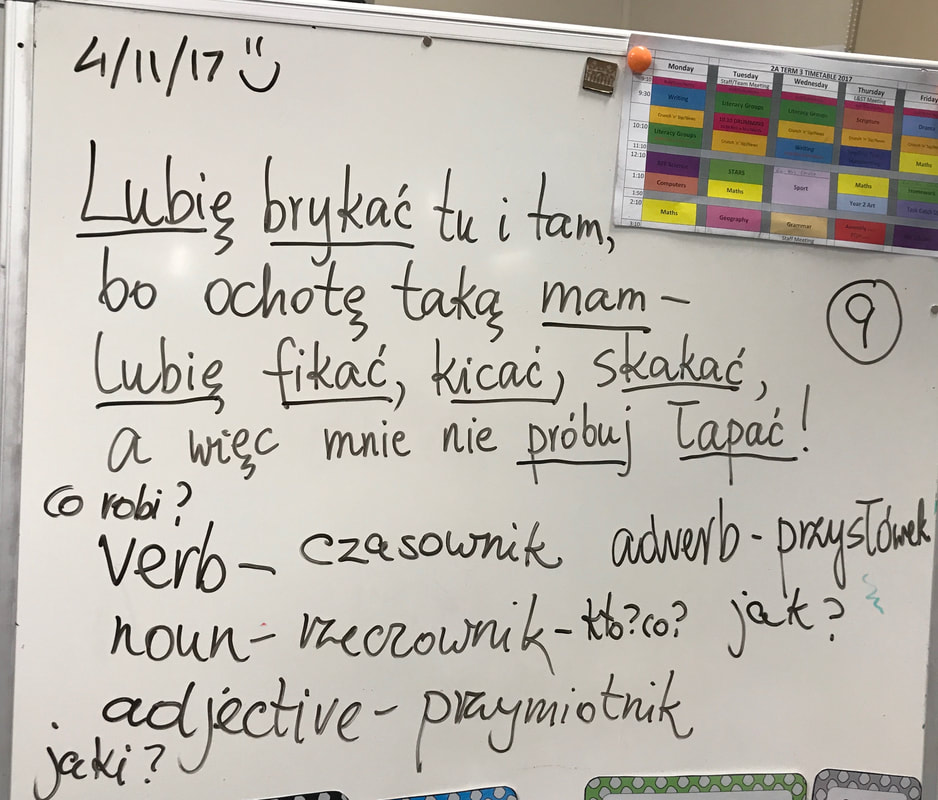 4/11/17
Lubię brykać tu i tam,
bo ochotę taką mam –
lubię fikać, kicać, skakać,
a więc mnie nie próbuj łapać!
9
co robi?
verb – czasownik adverb - przysłówek
noun - rzeczownik - kto? co? jak?
adjective - przymiotnik
jaki?
2A TERM 3 TIMETABLE 2017
Monday Tuesday Wednesday Thursday Friday
Staff/Team Meeting
9:30 Writing Literacy Groups Literacy Groups Scripture Drama
10:10 Literacy Groups Writing
11:10 Maths
12:10 STARS
1:10 Computers Maths Sport Maths
1:50 Year 2 Art
2:10 Maths Geography Grammar
3:10 Staff Meeting